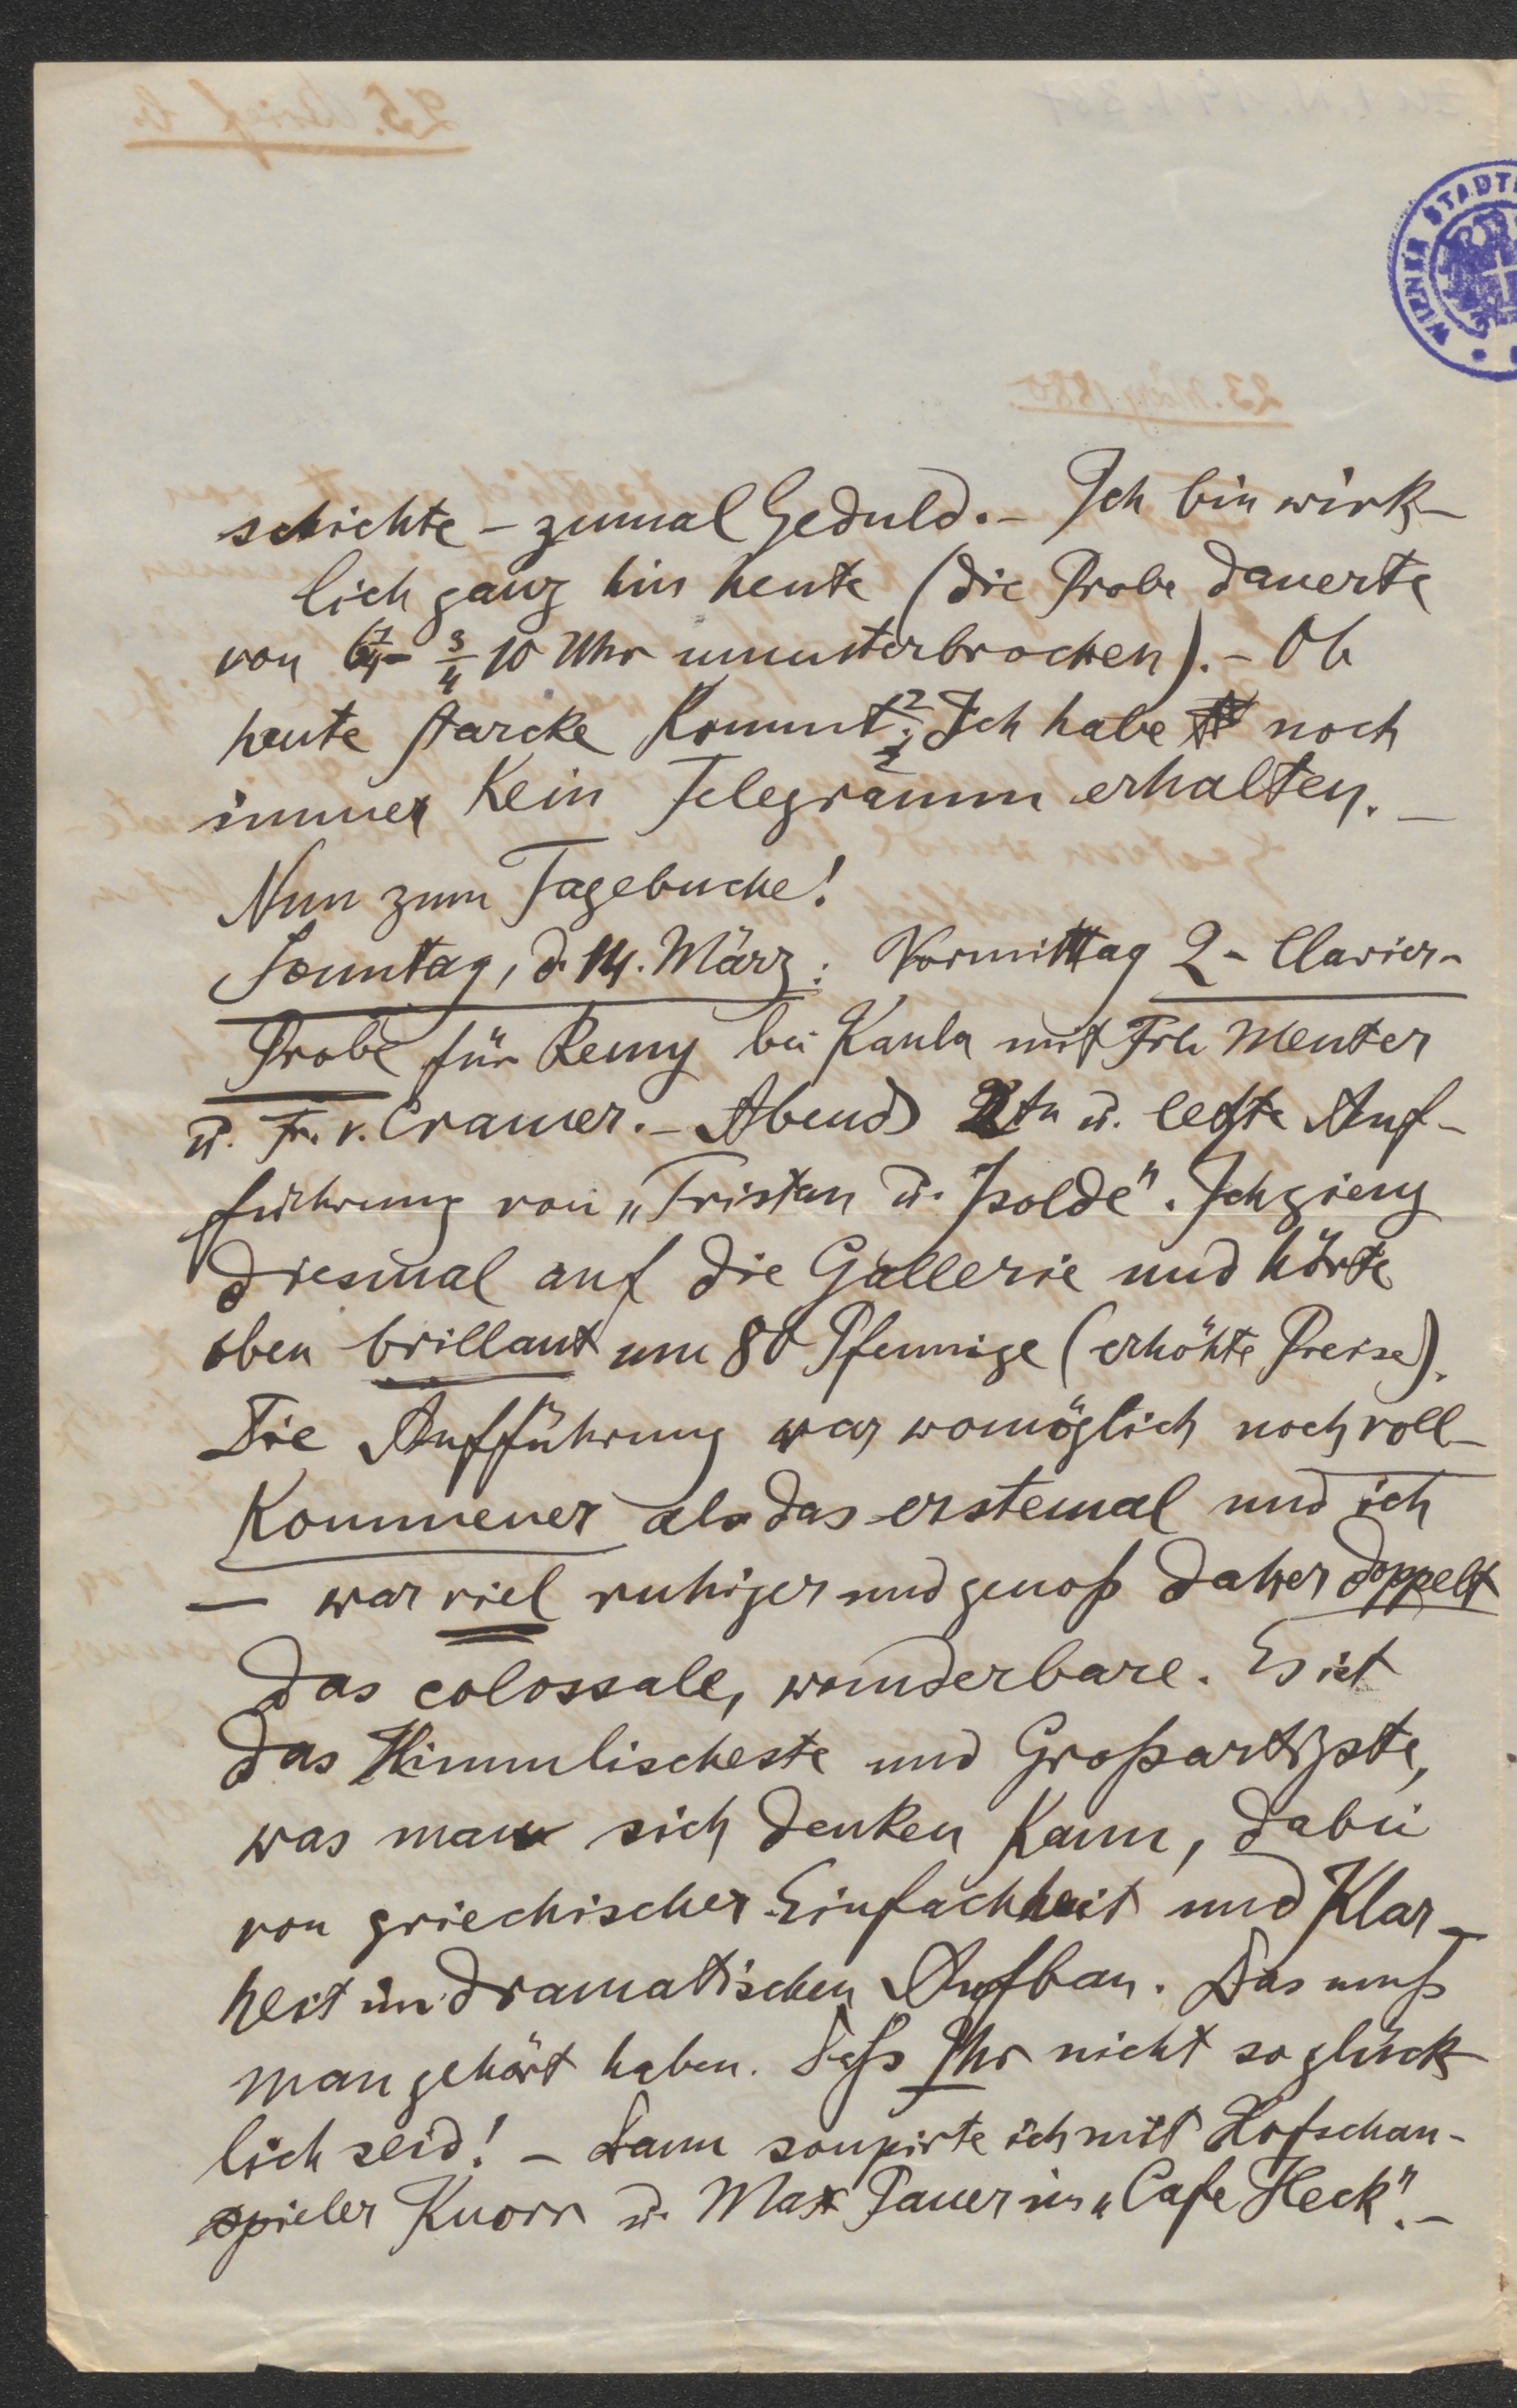 schichte – zumal Geduld. – Ich bin wirk-
lich ganz hin heute (die Probe dauerte
von – ¾ 10 Uhr ununterbrochen). – Ob
heute Starcke kommt? Ich habe noch
immer kein Telegramm erhalten. –
Nun zum Tagebuche!
Sonntag, d. 14. März: Vormittag 2-Clavier-
Probe für Remy bei Kaula mit Frl. Menter
u. Fr. v. Cramer. – Abends 2te u. letzte Auf-
führung von „Tristan u. Isolde". Ich gieng
diesmal auf die Gallerie und hörte
oben brillant um 80 Pfennige (erhöhte Preise).
Die Aufführung war womöglich noch voll-
kommener als das erstemal und ich
– war viel ruhiger und genoß daher doppelt
das colossale, wunderbare. Es ist
das Himmlischeste und Großartigste,
was man sich denken kann, dabei
von griechischer Einfachheit und Klar-
heit im dramatischen Aufbau. Das muß
man gehört haben. Daß Ihr nicht so glück-
lich seid! – Dann soupirte ich mit Hofschau-
spieler Knorr u. Max Pauer im „Cafe Heck". –
WIENER STADT